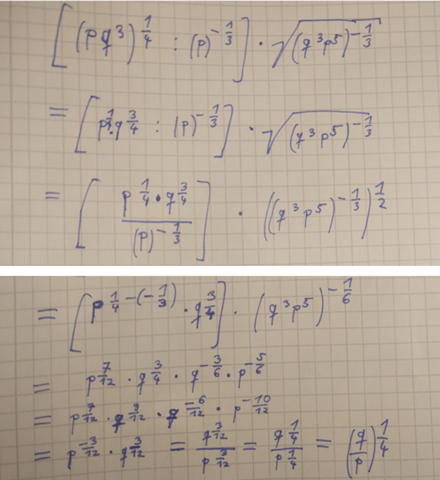 [(pq³)^{1/4} : (p)^{-1/3}] · √((q³p⁵)^{-1/3})
= [p^{1/4}·q^{3/4} : (p)^{-1/3}] · √((q³p⁵)^{-1/3})
= [(p^{1/4}·q^{3/4})/((p)^{-1/3})] · ((q³p⁵)^{-1/3})^{1/2}
= [p^{1/4-(-1/3)} · q^{3/4}] · (q³p⁵)^{-1/6}
= p^{7/12} · q^{3/4} · q^{-3/6} · p^{-5/6}
= p^{7/12} · q^{9/12} · q^{-6/12} · p^{-10/12}
= p^{-3/12} · q^{3/12} = q^{3/12}/p^{3/12} = q^{1/4}/p^{1/4} = (q/p)^{1/4}